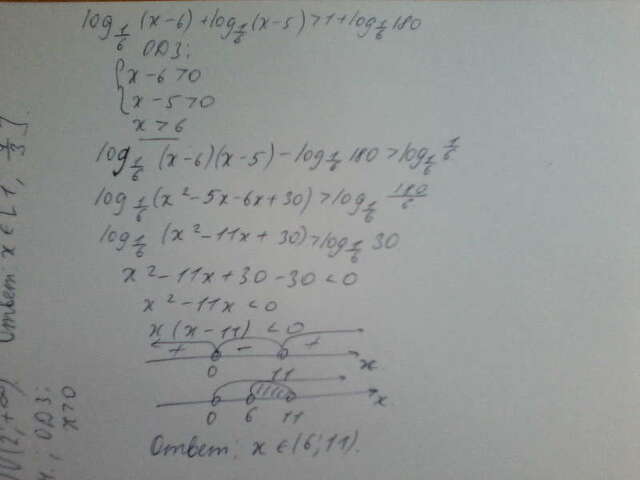 log_{1/6} (x-6) + log_{1/6} (x-5) > 1 + log_{1/6} 180
ОДЗ:
{ x-6>0
{ x-5>0
x>6
log_{1/6} (x-6)(x-5) - log_{1/6} 180 > log_{1/6} 1/6
log_{1/6} (x²-5x-6x+30) > log_{1/6} 180/6
log_{1/6} (x²-11x+30) > log_{1/6} 30
x²-11x+30-30<0
x²-11x<0
x(x-11)<0
+ - +
0 11 x
0 6 11 x
Ответ: x∈(6;11).
Ответ x∈[1; 7/3].
U(2;+∞)
ОДЗ:
x>0